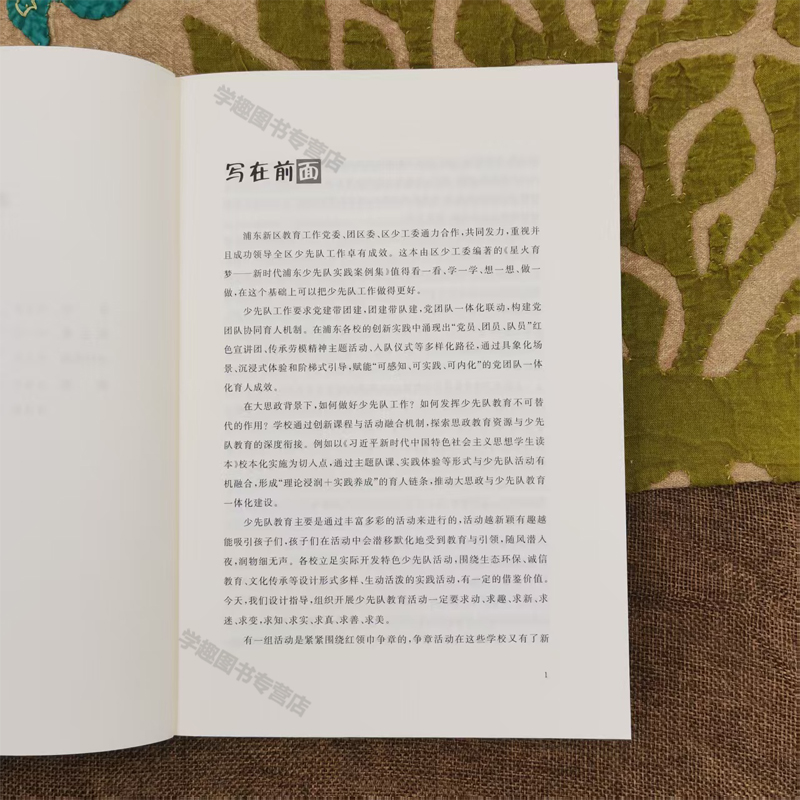 学趣图书专营店
写在前面
浦东新区教育工作党委、团区委、区少工委通力合作,共同发力,重视并
且成功领导全区少先队工作卓有成效。这本由区少工委编著的《星火育
梦——新时代浦东少先队实践案例集》值得看一看、学一学、想一想、做一
做,在这个基础上可以把少先队工作做得更好。
少先队工作要求党建带团建,团建带队建,党团队一体化联动,构建党
团队协同育人机制。在浦东各校的创新实践中涌现出“党员、团员、队员”红
色宣讲团、传承劳模精神主题活动、入队仪式等多样化路径,通过具象化场
景、沉浸式体验和阶梯式引导,赋能“可感知、可实践、可内化”的党团队一体
化育人成效。
在大思政背景下,如何做好少先队工作?如何发挥少先队教育不可替
代的作用?学校通过创新课程与活动融合机制,探索思政教育资源与少先
队教育的深度衔接。例如以《习近平新时代中国特色社会主义思想学生读
本》校本化实施为切入点,通过主题队课、实践体验等形式与少先队活动有
机融合,形成“理论浸润+实践养成”的育人链条,推动大思政与少先队教育
一体化建设。
少先队教育主要是通过丰富多彩的活动来进行的,活动越新颖有趣越
能吸引孩子们,孩子们在活动中会潜移默化地受到教育与引领,随风潜入
夜,润物细无声。各校立足实际开发特色少先队活动,围绕生态环保、诚信
教育、文化传承等设计形式多样、生动活泼的实践活动,有一定的借鉴价值。
今天,我们设计指导,组织开展少先队教育活动一定要求动、求趣、求新、求
迷、求变,求知、求实、求真、求善、求美。
有一组活动是紧紧围绕红领巾争章的,争章活动在这些学校又有了新
1
学趣图书专营店